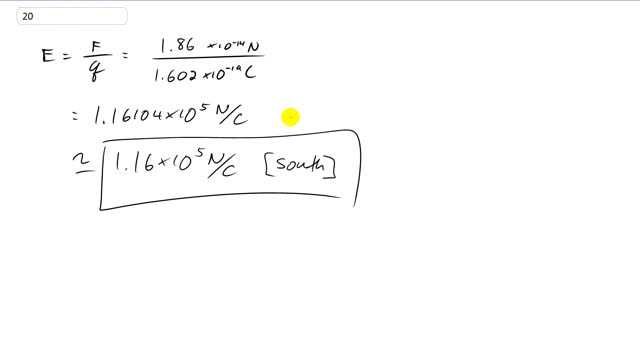 20
E = F/q = 1.86 ×10⁻¹⁴N / 1.602×10⁻¹⁹C
= 1.16104×10⁵ N/C
≃ 1.16×10⁵ N/C [south]